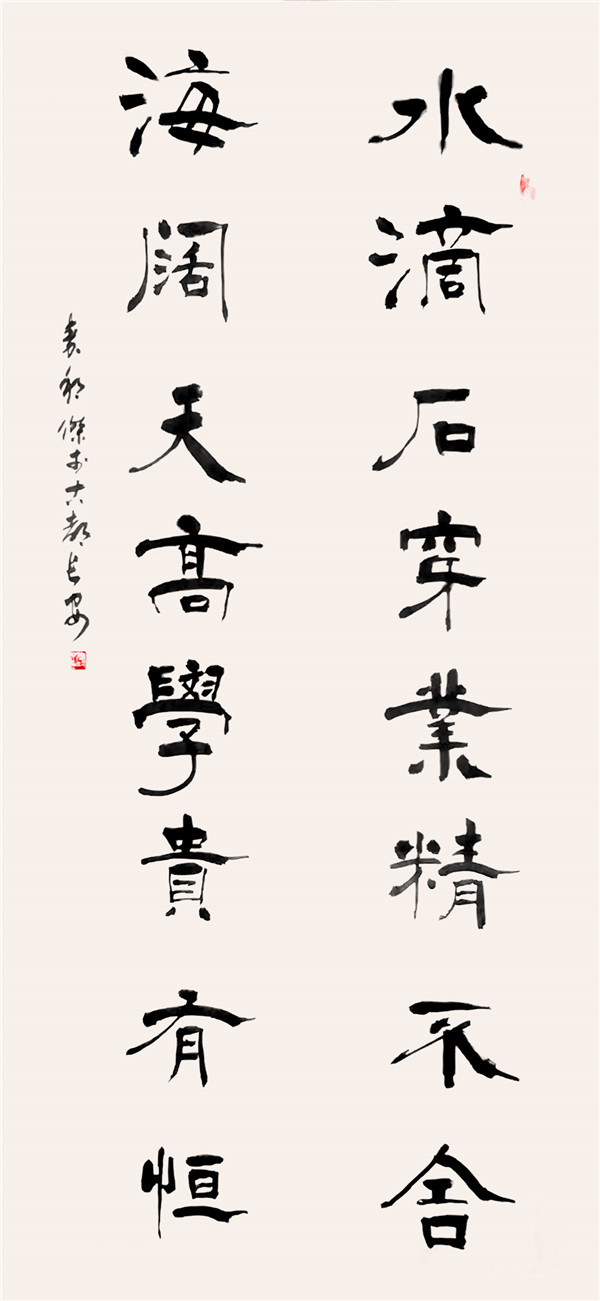 水滴石穿業精不舍
海闊天高學貴有恒
傑于古都長安